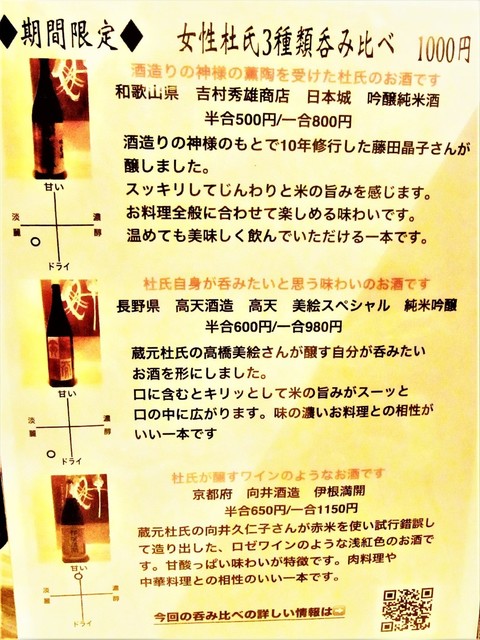 ◆期間限定◆ 女性杜氏3種類呑み比べ 1000円
酒造りの神様の薫陶を受けた杜氏のお酒です
和歌山県 吉村秀雄商店 日本城 吟醸純米酒
半合500円/一合800円
酒造りの神様のもとで10年修行した藤田晶子さんが
醸しました。
スッキリしてじんわりと米の旨みを感じます。
お料理全般に合わせて楽しめる味わいです。
温めても美味しく飲んでいただける一本です。
甘い
淡麗
濃醇
ドライ
杜氏自身が呑みたいと思う味わいのお酒です
長野県 高天酒造 高天 美絵スペシャル 純米吟醸
半合600円/一合980円
蔵元杜氏の高橋美絵さんが醸す自分が呑みたい
お酒を形にしました。
口に含むとキリッとして米の旨みがスーッと
口の中に広がります。味の濃いお料理との相性が
いい一本です
甘い
淡麗
濃醇
ドライ
杜氏が醸すワインのようなお酒です
京都府 向井酒造 伊根満開
半合650円/一合1150円
蔵元杜氏の向井久仁子さんが赤米を使い試行錯誤し
て造り出した、ロゼワインのような浅紅色のお酒で
す。甘酸っぱい味わいが特徴です。肉料理や
中華料理との相性のいい一本です。
甘い
淡麗
濃醇
ドライ
今回の呑み比べの詳しい情報は⇨